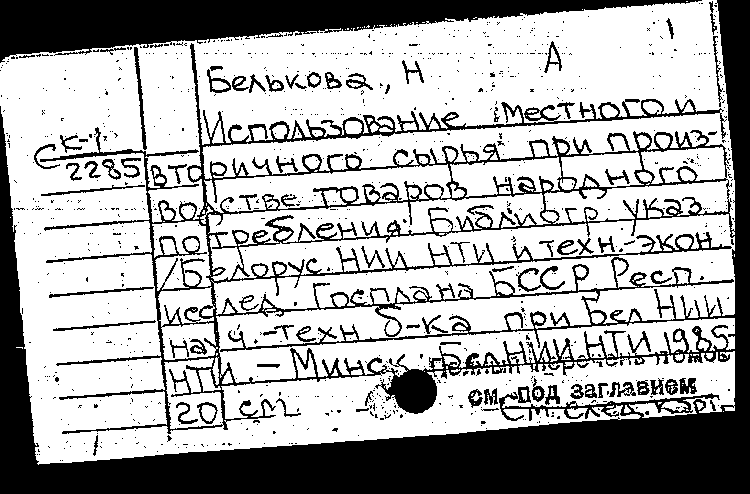 1
Белькова, Н А
Использование местного и
СК-1
2285
вторичного сырья при произ-
водстве товаров народного
потребления: Библиогр. указ.
/Белорус. НИИ НТИ и техн.-экон.
исслед. Госплана БССР, Респ.
науч.-техн. б-ка при Бел НИИ
НТИ. - Минск: БелНИИНТИ, 1985
Полный перечень томов
см. под заглавием
20 см
См. след. карт.